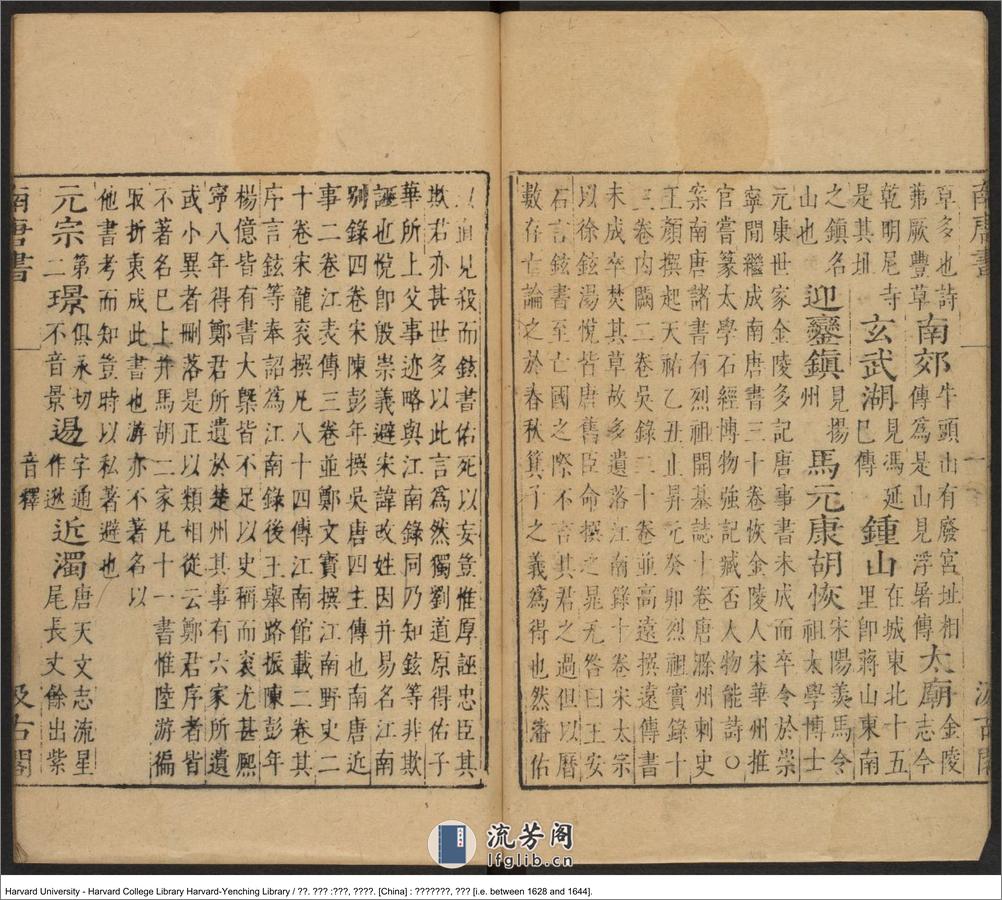 南唐書 一 汲古閣
草多也詩茀厥豐草 南郊 牛頭山有廢宮址相傳為是山見浮暑傳 太廟 金陵志今
乾明尼寺是其址 玄武湖 見馮延巳傳 鍾山 在城東北十五里即蔣山東南
之鎮名山也 迎鑾鎮 見揚州 馬元康胡恢 宋陽羨馬令祖太學博士
元康世家金陵多記唐事書未成而卒令於崇
寧間繼成南唐書三十卷恢金陵人宋華州推
官嘗篆太學石經博物強記臧否人物能詩○
案南唐諸書有烈祖開基誌十卷唐滁州刺史
王顏撰起天祐乙丑止昇元癸卯烈祖實錄十
三卷内闕二卷吳錄二十卷並高遠撰遠傳書
未成卒焚其草故多遺落江南錄十卷宋太宗
以徐鉉湯悅皆唐舊臣命撰之晁无咎曰王安
石言鉉書至亡國之際不言其君之過但以曆
數存亡論之於春秋箕子之義爲得也然潘佑
以直見殺而鉉書佑死以妄豈惟厚誣忠臣其
欺君亦甚世多以此言爲然獨劉道原得佑子
華所上父事迹略與江南錄同乃知鉉等非欺
誣也悅即殷崇義避宋諱改姓因并易名江南
別錄四卷宋陳彭年撰吳唐四主傳也南唐近
事二卷江表傳三卷並鄭文寶撰江南野史二
十卷宋龍袞撰凡八十四傳江南館載二卷其
序言鉉等奉詔爲江南錄後王舉路振陳彭年
楊億皆有書大槩皆不足以史稱而袞尤甚熙
寧八年得鄭君所遺於楚州其事有六家所遺
或小異者刪落是正以類相從云鄭君序者皆
不著名已上并馬胡二家凡十一書惟陸游徧
取折衷成此書也游亦不著名以
他書考而知豈時以私著避也
音釋
元宗 二第 璟 俱永切不音景 逷 字通作逖 近濁 唐天文志流星尾長丈餘出紫
南唐書 一 汲古閣
流芳阁
lfglib.cn
Harvard University - Harvard College Library Harvard-Yenching Library / ??. ??? :???, ????. [China] : ???????, ??? [i.e. between 1628 and 1644].